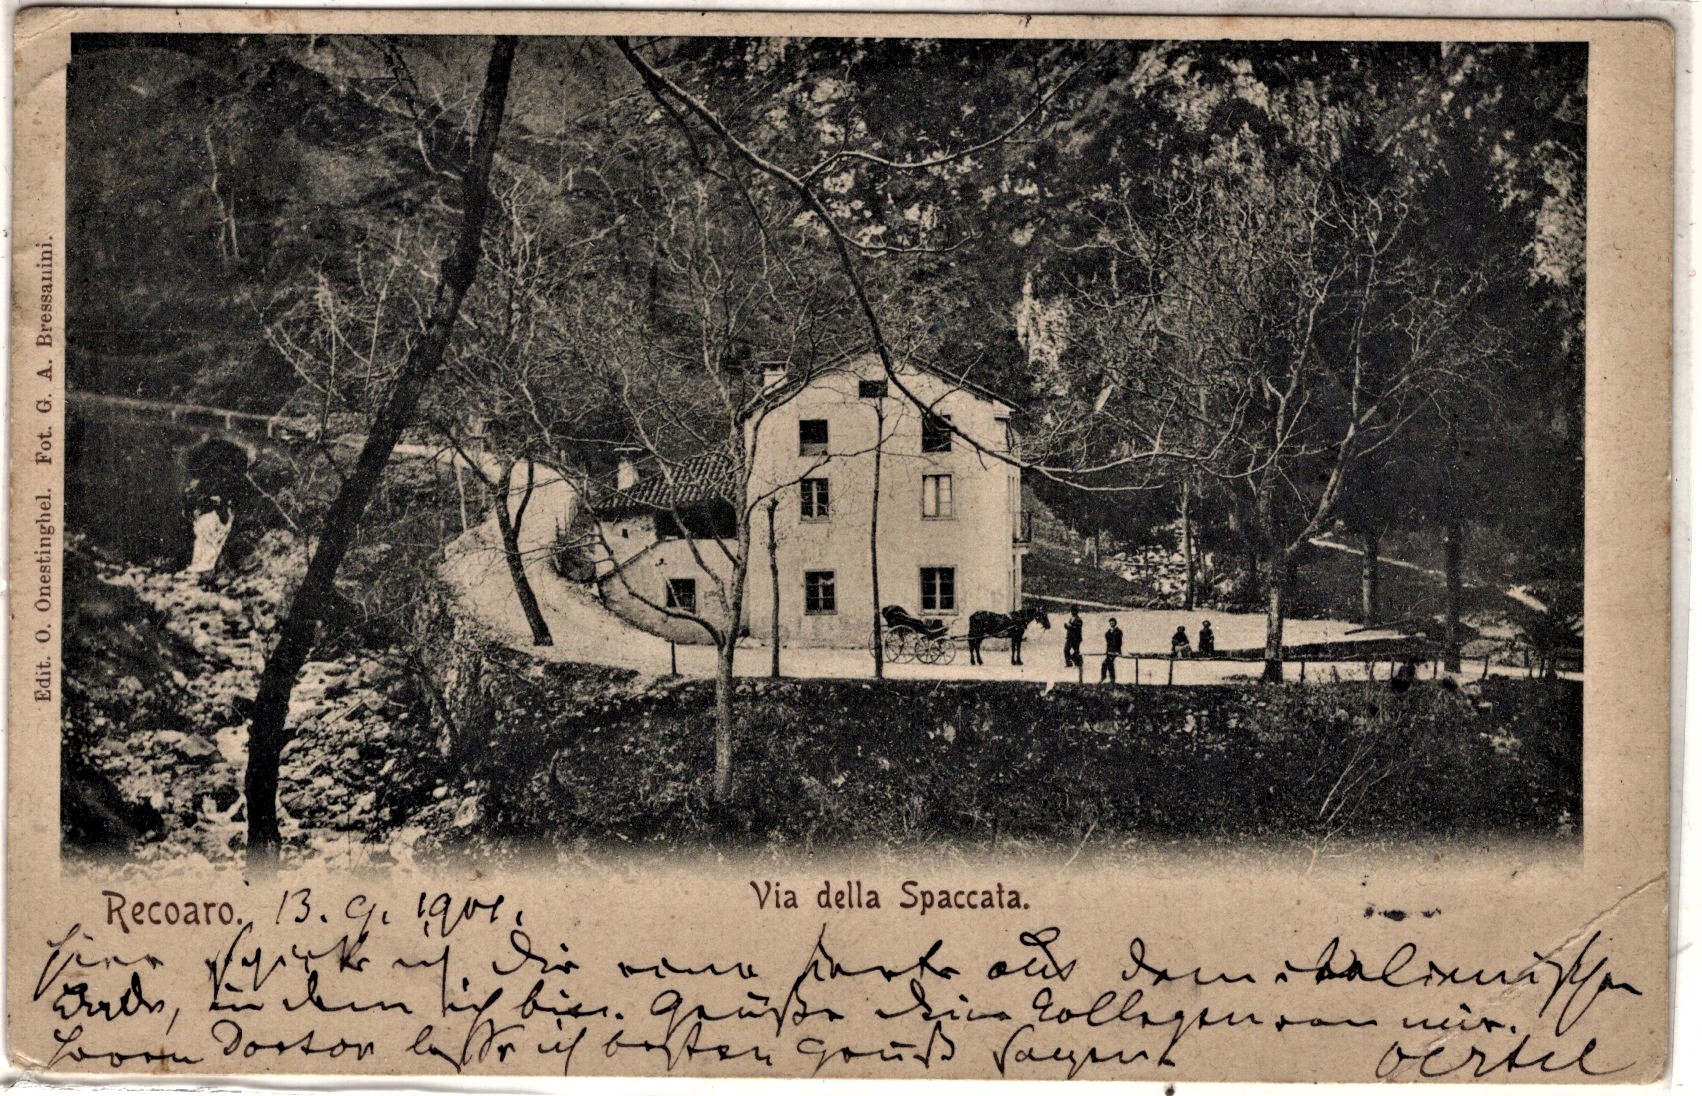 Edit. O. Onestinghel. Fot. G. A. Bressanini.
Recoaro. 13. 9. 1901.
Via della Spaccata.
hier schicke ich Dir eine Karte aus dem italienischen
Bade, in dem ich bin. Grüße Deine Collegen von mir.
Herrn Doctor lasse ich besten Gruß sagen.
Oertel